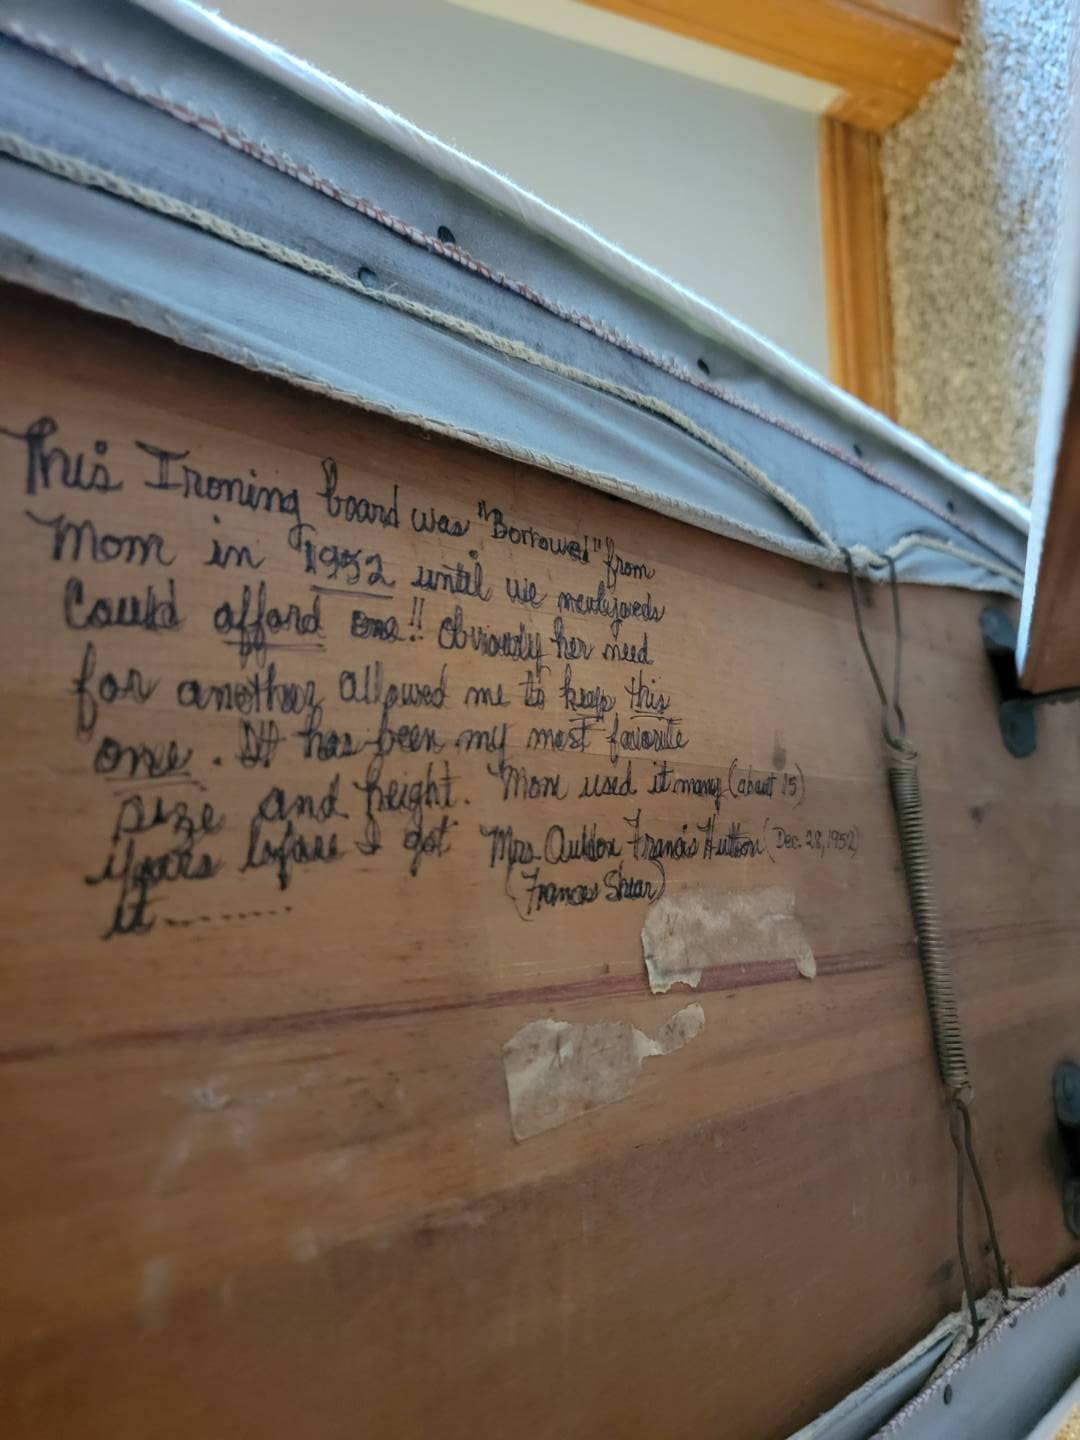 This Ironing board was "Borrowed" from
Mom in 1952 until we newlyweds
Could afford one!! Obviously her need
for another allowed me to keep this
one. It has been my most favorite
size and height. Mom used it many (about 15)
years before I got Mrs. Auldon Francis Hutton (Dec. 28, 1952)
it........ (Frances Shear)